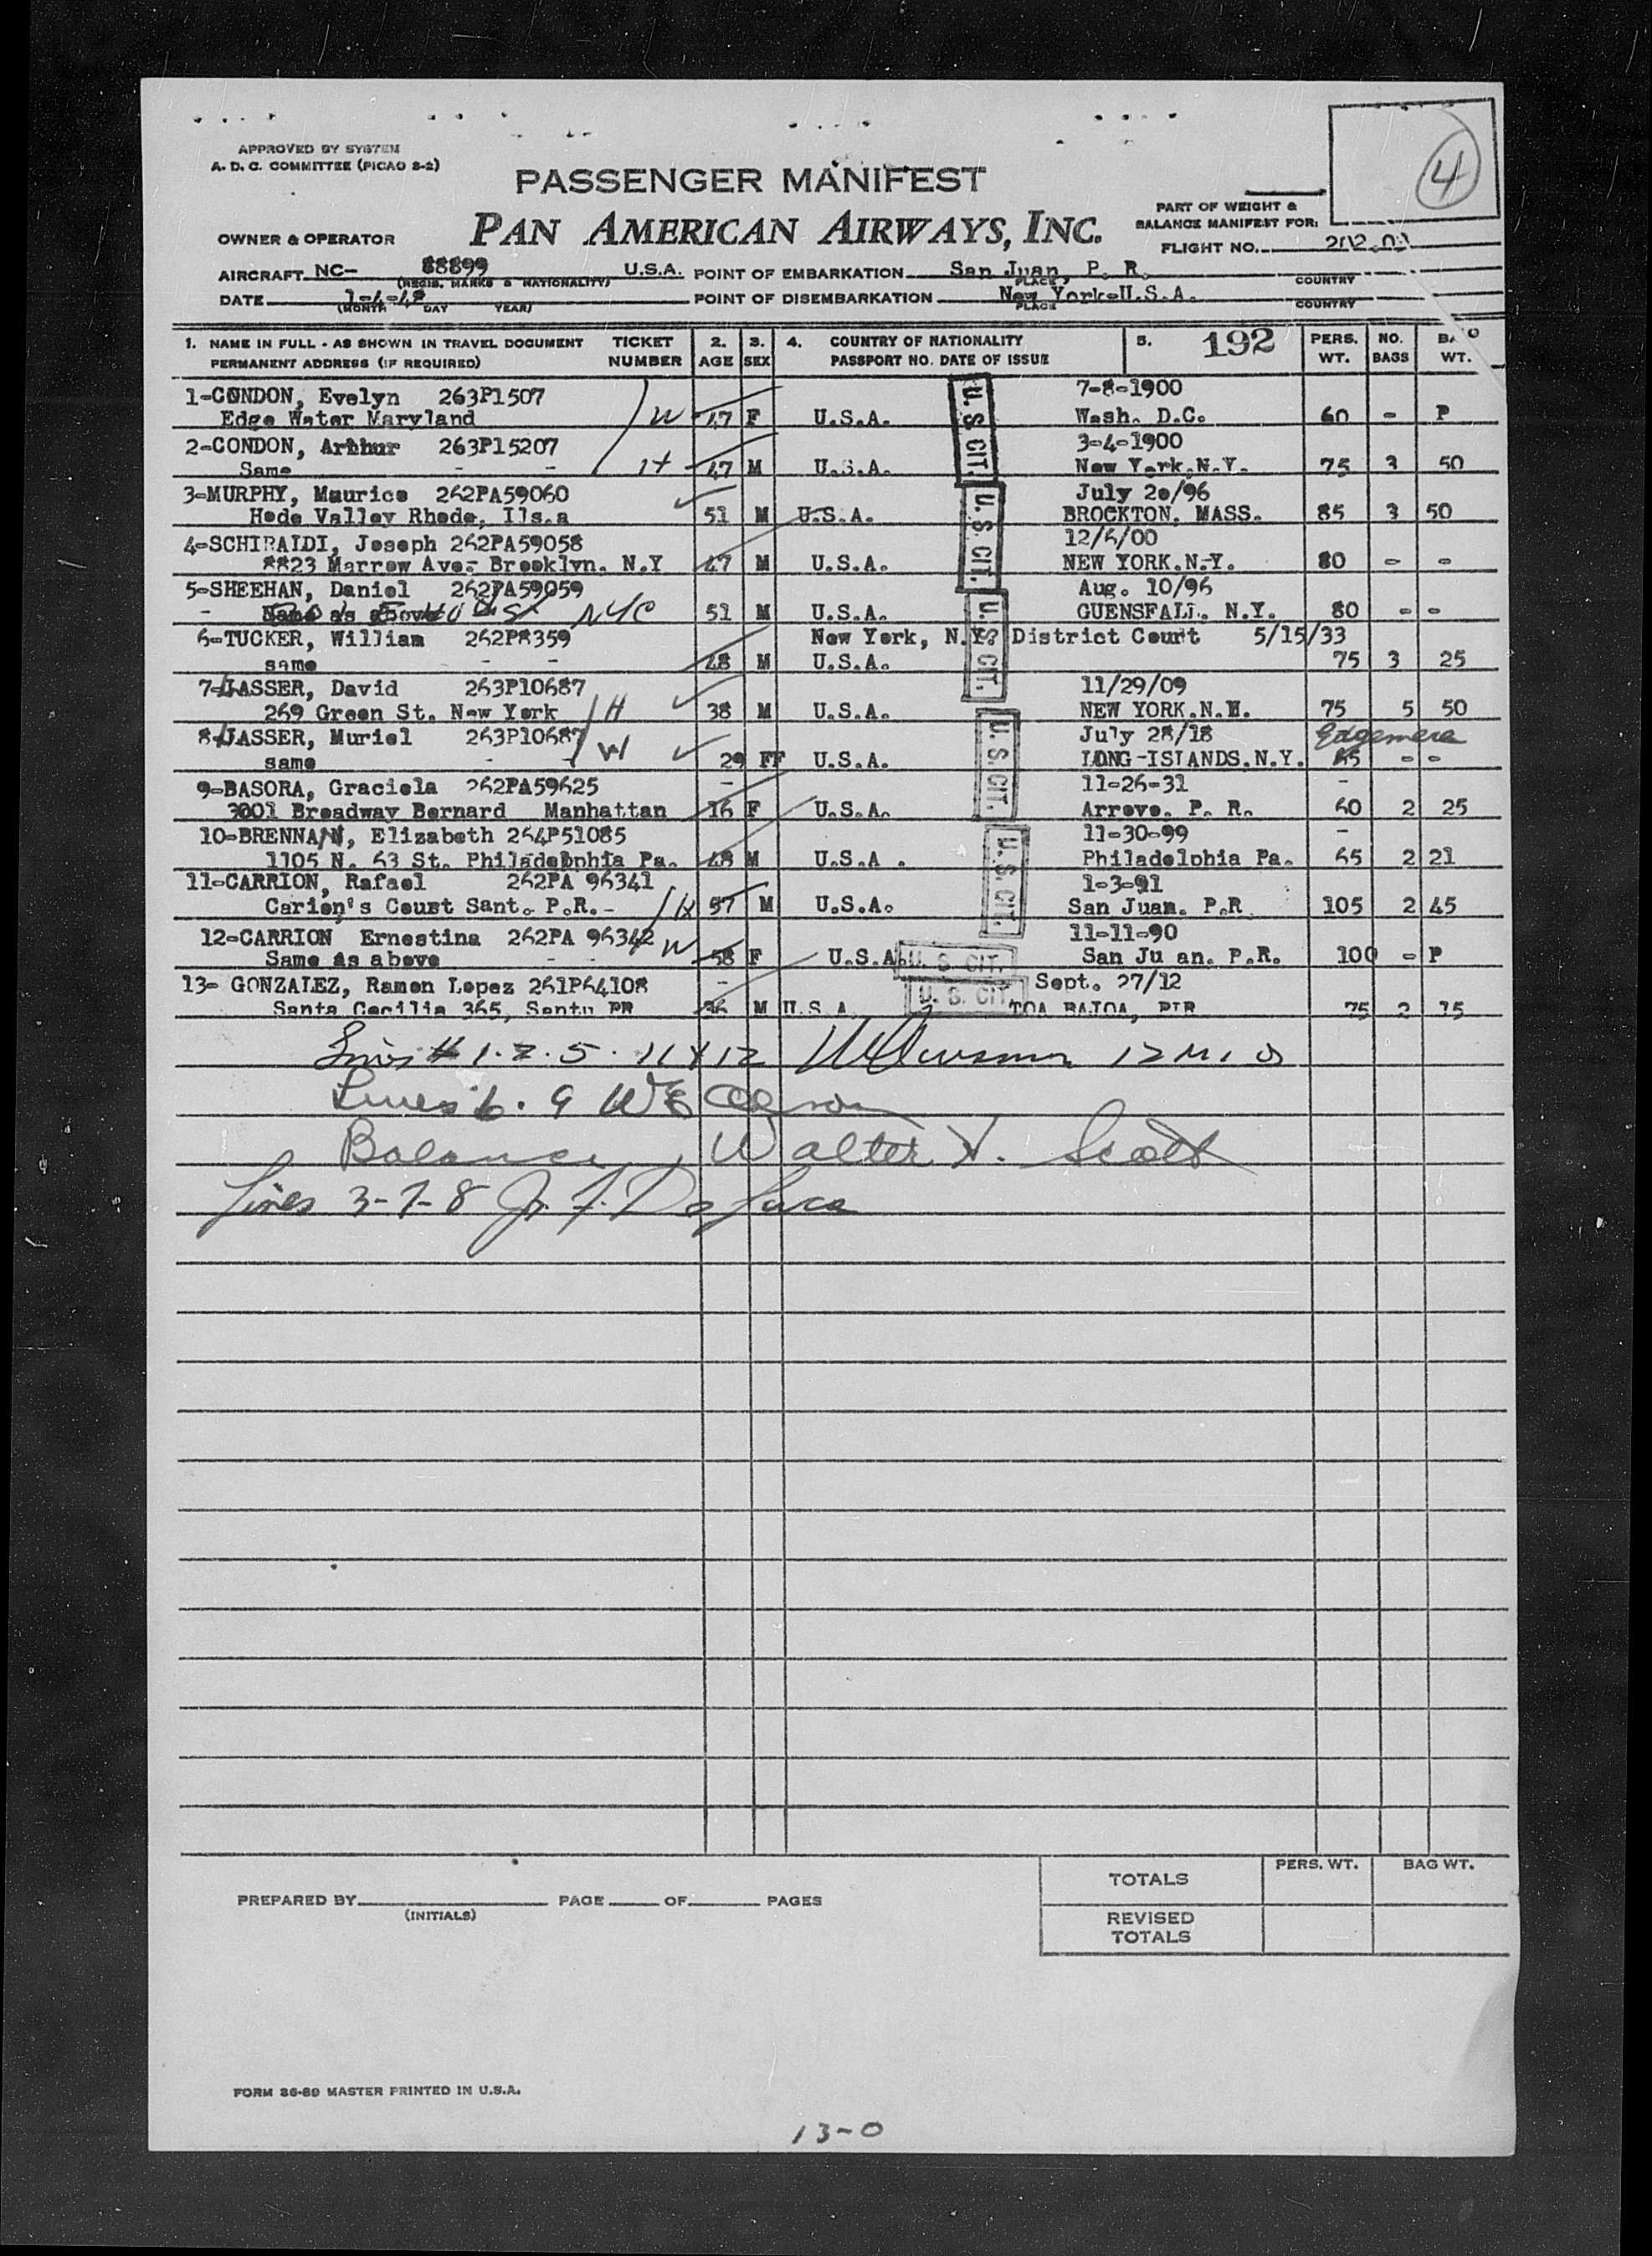 APPROVED BY SYSTEM
A. D. C. COMMITTEE (PICAO S-2)
4
PASSENGER MANIFEST
PART OF WEIGHT &
BALANCE MANIFEST FOR:
OWNER & OPERATOR PAN AMERICAN AIRWAYS, INC.
FLIGHT NO.
AIRCRAFT NC- 88899 U.S.A. POINT OF EMBARKATION San Juan, P. R.
(REGIS. MARKS & NATIONALITY) PLACE COUNTRY
DATE 1-4-48 POINT OF DISEMBARKATION New York-U.S.A.
(MONTH DAY YEAR) PLACE COUNTRY
1. NAME IN FULL - AS SHOWN IN TRAVEL DOCUMENT TICKET 2. 3. 4. COUNTRY OF NATIONALITY 5. 192 PERS. NO.
PERMANENT ADDRESS (IF REQUIRED) NUMBER AGE SEX PASSPORT NO. DATE OF ISSUE WT. BAGS WT.
1-CONDON, Evelyn 263P1507 7-8-1900
Edge Water Maryland W 47 F U.S.A. Wash. D.C. 60 - P
2-CONDON, Arthur 263P15207 3-4-1900
Same - - H 47 M U.S.A. New York.N.Y. 75 3 50
3-MURPHY, Maurice 262PA59060 July 20/96
Hode Valley Rhode, Ils.a 51 M U.S.A. BROCKTON. MASS. 85 3 50
4-SCHIRALDI, Joseph 262PA59058 12/6/00
8823 Marrow Ave- Brooklyn. N.Y 47 M U.S.A. NEW YORK.N.Y. 80 - -
5-SHEEHAN, Daniel 262PA59059 Aug. 10/96
- Same as above St NYC 51 M U.S.A. GUENSFALL. N.Y. 80 - -
6-TUCKER, William 262P8359 New York, N.Y. District Court 5/15/33
same - - 48 M U.S.A. 75 3 25
7-LASSER, David 263P10687 11/29/09
269 Green St. New York H 38 M U.S.A. NEW YORK.N.Y. 75 5 50
8-LASSER, Muriel 263P10687 July 28/18 Edgemere
same - - W 29 FF U.S.A. LONG-ISLANDS.N.Y. 65 - -
9-BASORA, Graciela 262PA59625 - 11-26-31 -
3001 Broadway Bernard Manhattan 16 F U.S.A. Arroyo. P. R. 60 2 25
10-BRENNAN, Elizabeth 264P51085 11-30-99 -
1105 N. 63 St. Philadelphia Pa. 48 M U.S.A. Philadelphia Pa. 65 2 21
11-CARRION, Rafael 262PA 96341 1-3-91
Carion's Court Sant. P.R.- H 57 M U.S.A. San Juan. P.R 105 2 45
12-CARRION Ernestina 262PA 96342 11-11-90
Same as above - - W 58 F U.S.A. San Ju an. P.R. 100 - P
13- GONZALEZ, Ramon Lopez 261P64108 - Sept. 27/12
Santa Cecilia 365, Santu PR 36 M U.S.A. TOA BAJOA, PIR 75 2 15
U. S. CIT.
U. S. CIT.
U. S. CIT.
U. S. CIT.
U. S. CIT.
U. S. CIT.
U. S. CIT.
Lines # 1. 2. 5. 11 & 12
Lines 6. 9
Balance, Walter Scott
Lines 3-7-8
PERS. WT. BAG WT.
TOTALS
PREPARED BY PAGE OF PAGES
(INITIALS)
REVISED
TOTALS
FORM 36-69 MASTER PRINTED IN U.S.A.
13-0